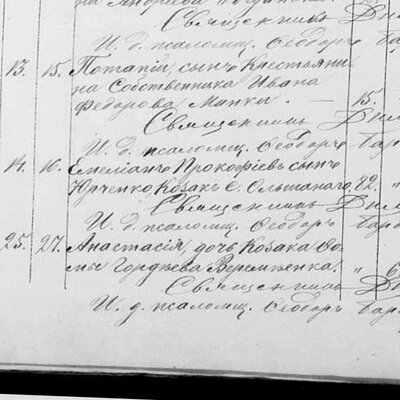 на Андреева
Священникъ Дим
И. д. псаломщ. Ѳеодоръ бар
13. 15. Потапій, сынъ Крестьяни-
на Собственника Ивана
Федорова Мапки. — 15.
Священникъ Дим
И. д. псаломщ. Ѳеодоръ бар
14. 16. Емеліанъ Прокофіевъ сынъ
Юрченко Козакъ С. Ольшаного 82. "
Священникъ Дим
И. д. псаломщ. Ѳеодоръ бар
25. 27. Анастасія, дочь Козака Ѳо-
мы Гордѣева Веремѣенка. " 6
Священникъ Ди
И. д. псаломщ. Ѳеодоръ бар